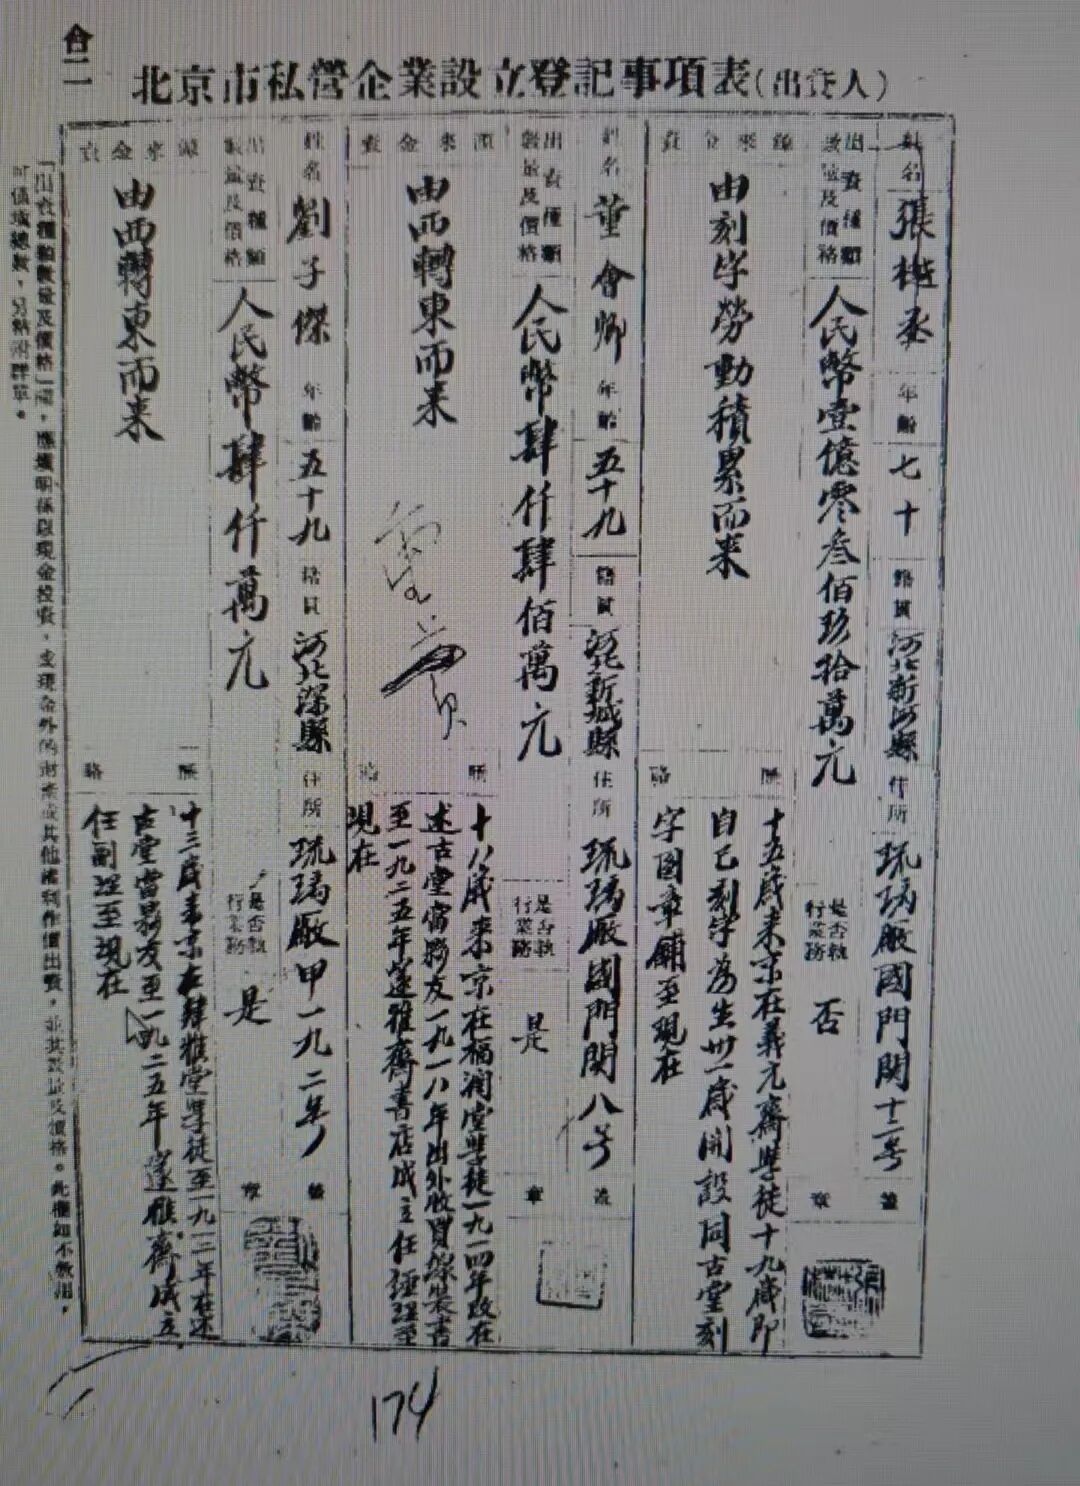 合二
北京市私營企業設立登記事項表(出資人)
姓名
張樾丞
年齡
七十
籍貫
河北新河縣
住所
琉璃廠國門関十二号
蓋章
出資種類
數量及價格
人民幣壹億零叁佰玖拾萬元
是否執
行業務
否
資金來源
由刻字勞動積累而来
略歷
十五歲来京在義元齋學徒十九歲即
自己刻字為生卅一歲開設同古堂刻
字圖章鋪至現在
姓名
董會卿
年齡
五十九
籍貫
河北新城縣
住所
琉璃廠國門関八号
蓋章
出資種類
數量及價格
人民幣肆仟肆佰萬元
是否執
行業務
是
資金來源
由西轉東而来
略歷
十八歲来京在福潤堂學徒一九一四年改在
述古堂當夥友一九一八年出外收買線裝書
至一九二五年邃雅齋書店成立任經理至
現在
姓名
劉子傑
年齡
五十九
籍貫
河北深縣
住所
琉璃廠甲一九二号
蓋章
出資種類
數量及價格
人民幣肆仟萬元
是否執
行業務
是
資金來源
由西轉東而来
略歷
十三歲来京在肆雅堂學徒至一九一二年在述
古堂當夥友至一九二五年邃雅齋成立
任副理至現在
「出資種類數量及價格」項，應填明係以現金投資，或現金外的財產或其他權利作價出資，並其數量及價格。此欄如不敷用，
可僅填總數，另粘附詳單。
174